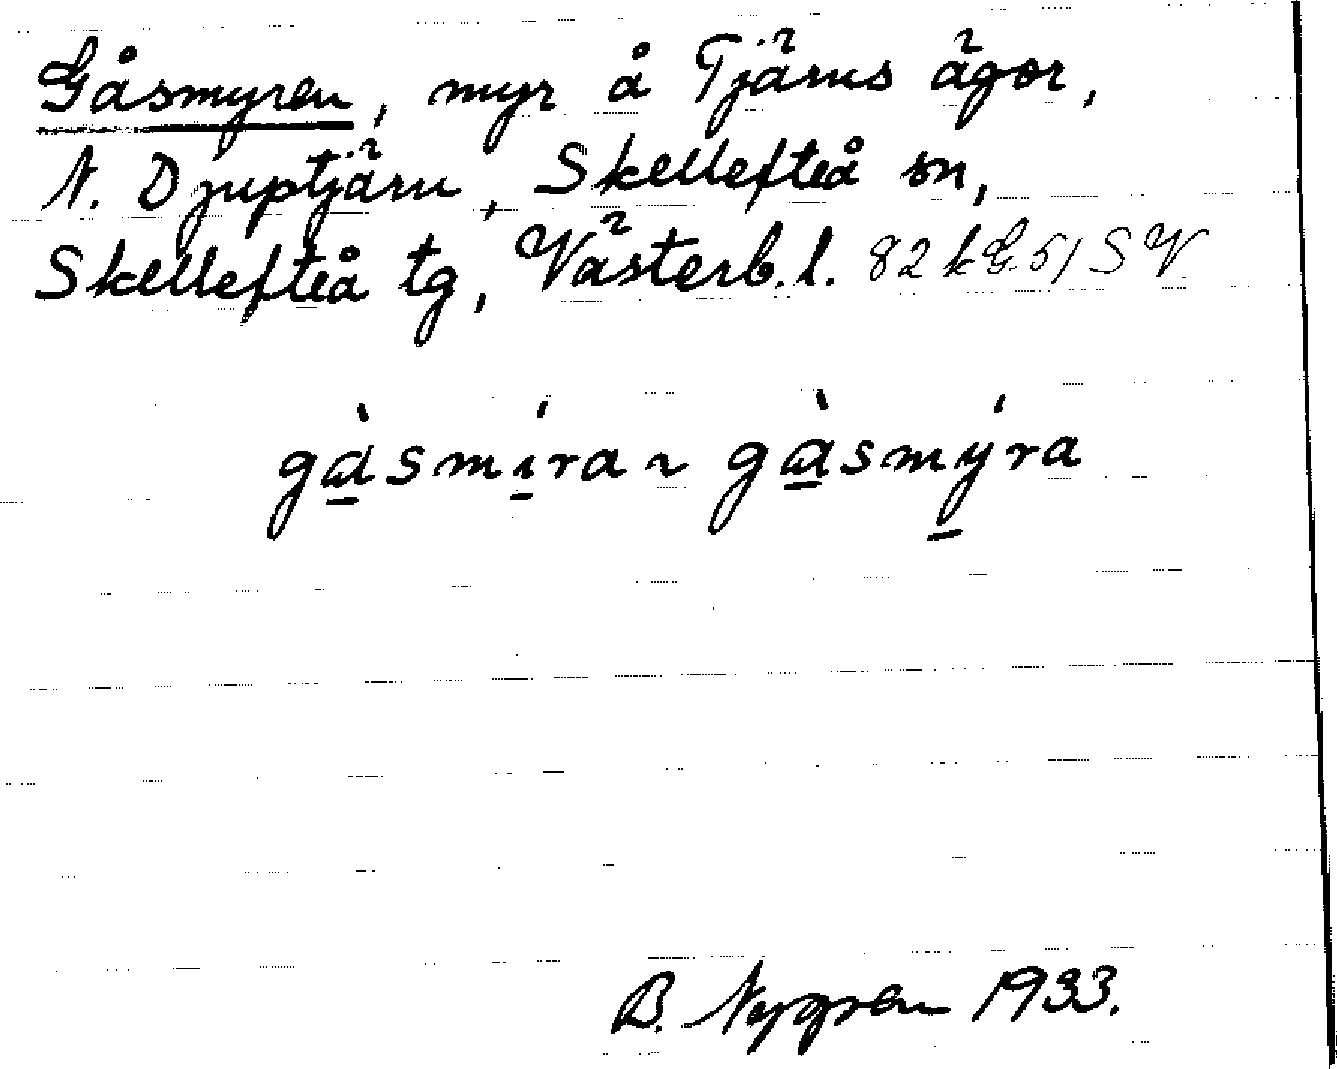 Gåsmyren, myr å Tjärns ägor,
N. Djuptjärn, Skellefteå sn,
Skellefteå tg, Västerb. l. 82 k G. 51 SV
gàsmíra ~ gàsmýra
B. Nygren 1933.